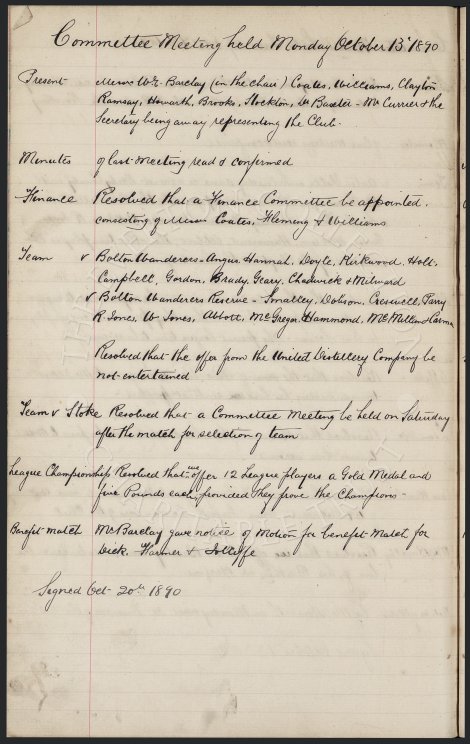 Committee Meeting held Monday October 13th 1890
Present Messrs Wm Barclay (in the Chair) Coates, Williams, Clayton
Ramsay, Howarth, Brooks, Stockton, Dr Baxter - Mr Currier & the
Secretary being away representing the Club.
Minutes of last Meeting read & confirmed
Finance Resolved that a Finance Committee be appointed.
consisting of Messrs Coates, Fleming & Williams
Team v Bolton Wanderers - Angus, Hannah, Doyle, Kirkwood, Holt.
Campbell, Gordon, Brady, Geary, Chadwick & Milward
v Bolton Wanderers Reserve - Smalley, Dobson, Cresswell, Parry
R Jones, W Jones, Abbott, McGregor, Hammond, McMillan &
Resolved that the offer from the United Distillery Company be
not entertained
Team v Stoke Resolved that a Committee Meeting be held on Saturday
after the match for selection of team
League Championship Resolved that we offer 12 League players a Gold Medal and
five Pounds each provided they prove the Champions -
Benefit Match Mr Barclay gave notice of Motion for benefit Match for
Dick, Farmer & Jolliffe
Signed Oct 20th 1890